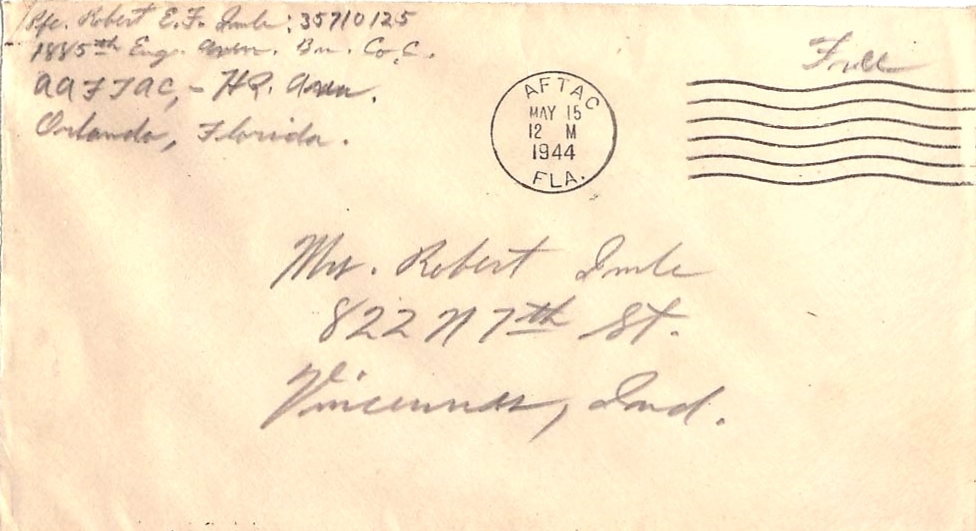 Pfc. Robert E. F. Imle: 35710125
1885th Eng. Avn. Bn. Co. C.
AAFTAC, - H2. Avn.
Orlando, Florida.
Free
AFTAC
MAY 15
12 M
1944
FLA.
Mrs. Robert Imle
822 N 7th St.
Vincennes, Ind.